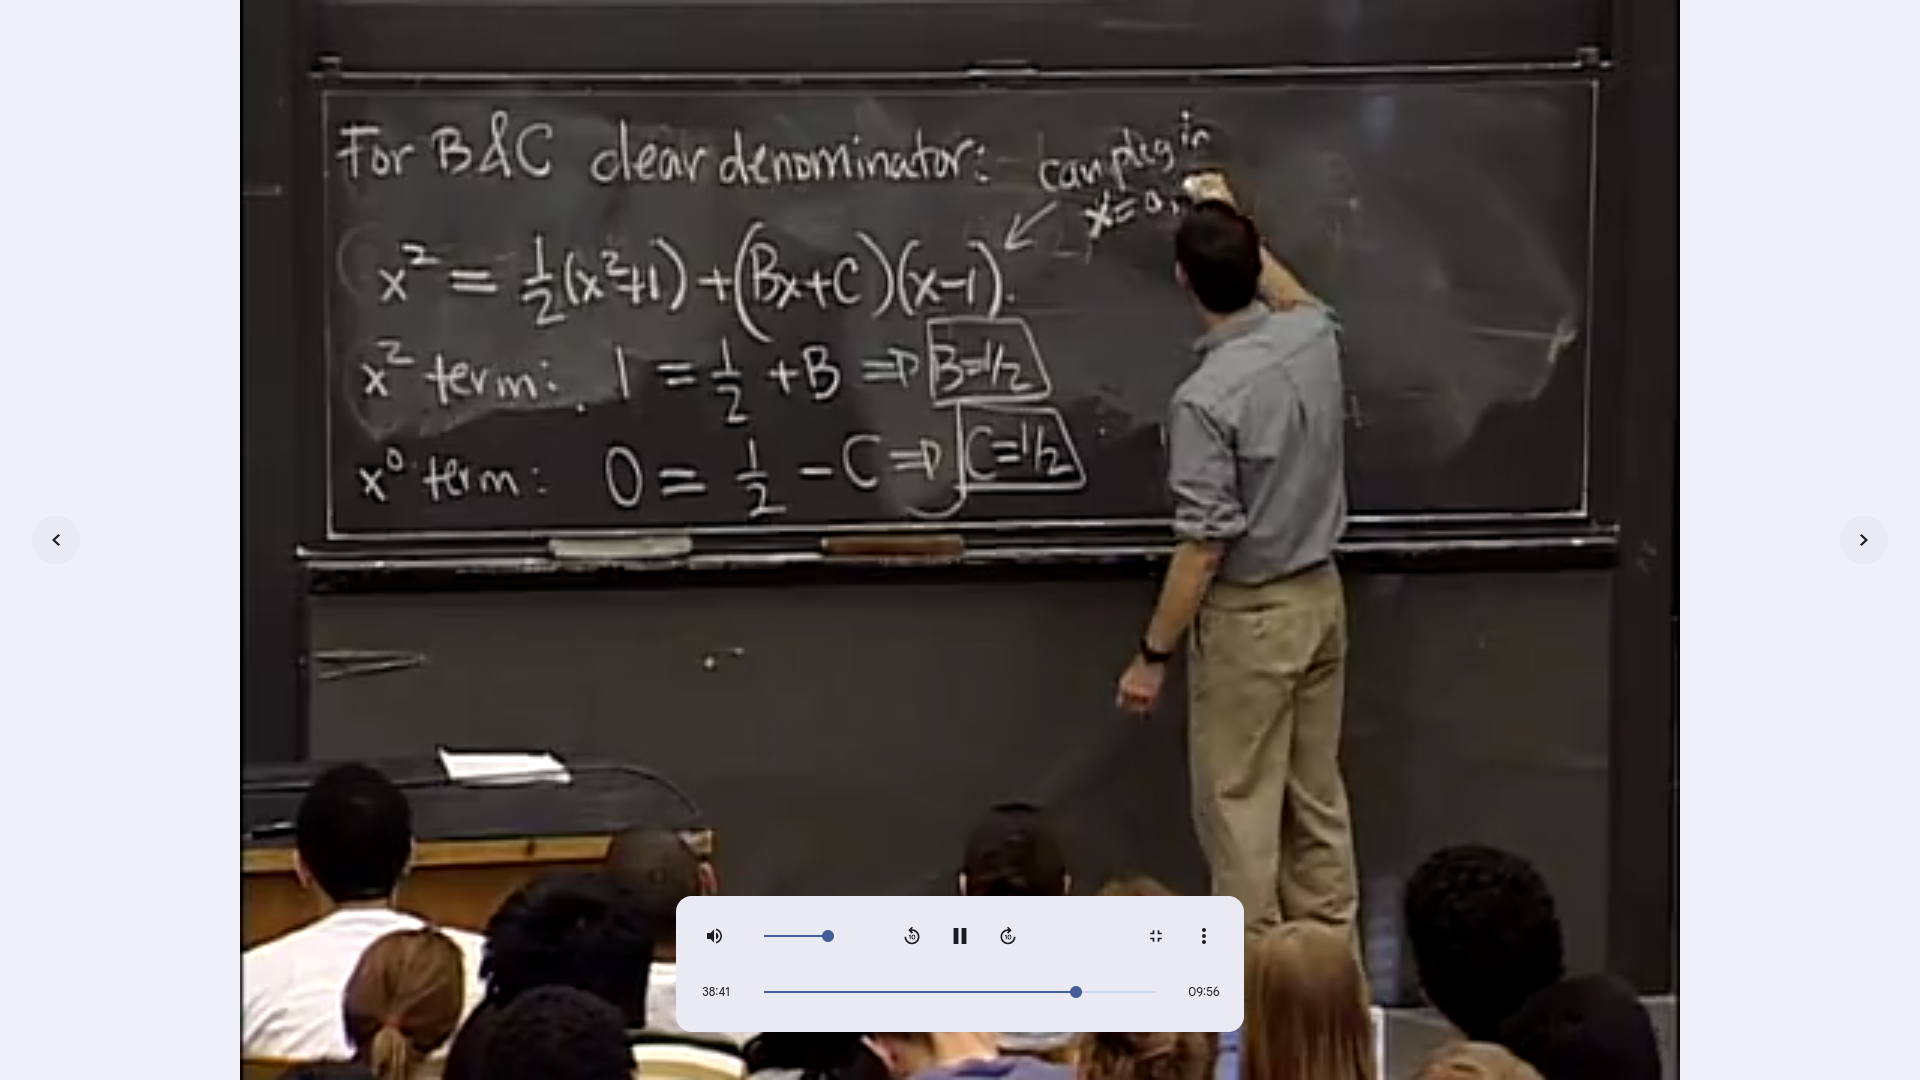 For B&C clear denominator:
can plug in
x = 0,
x² = 1/2 (x²+1) + (Bx+C)(x-1).
x² term: 1 = 1/2 + B ⇒ B=1/2
x⁰ term: 0 = 1/2 - C ⇒ C=1/2
10
10
38:41
09:56